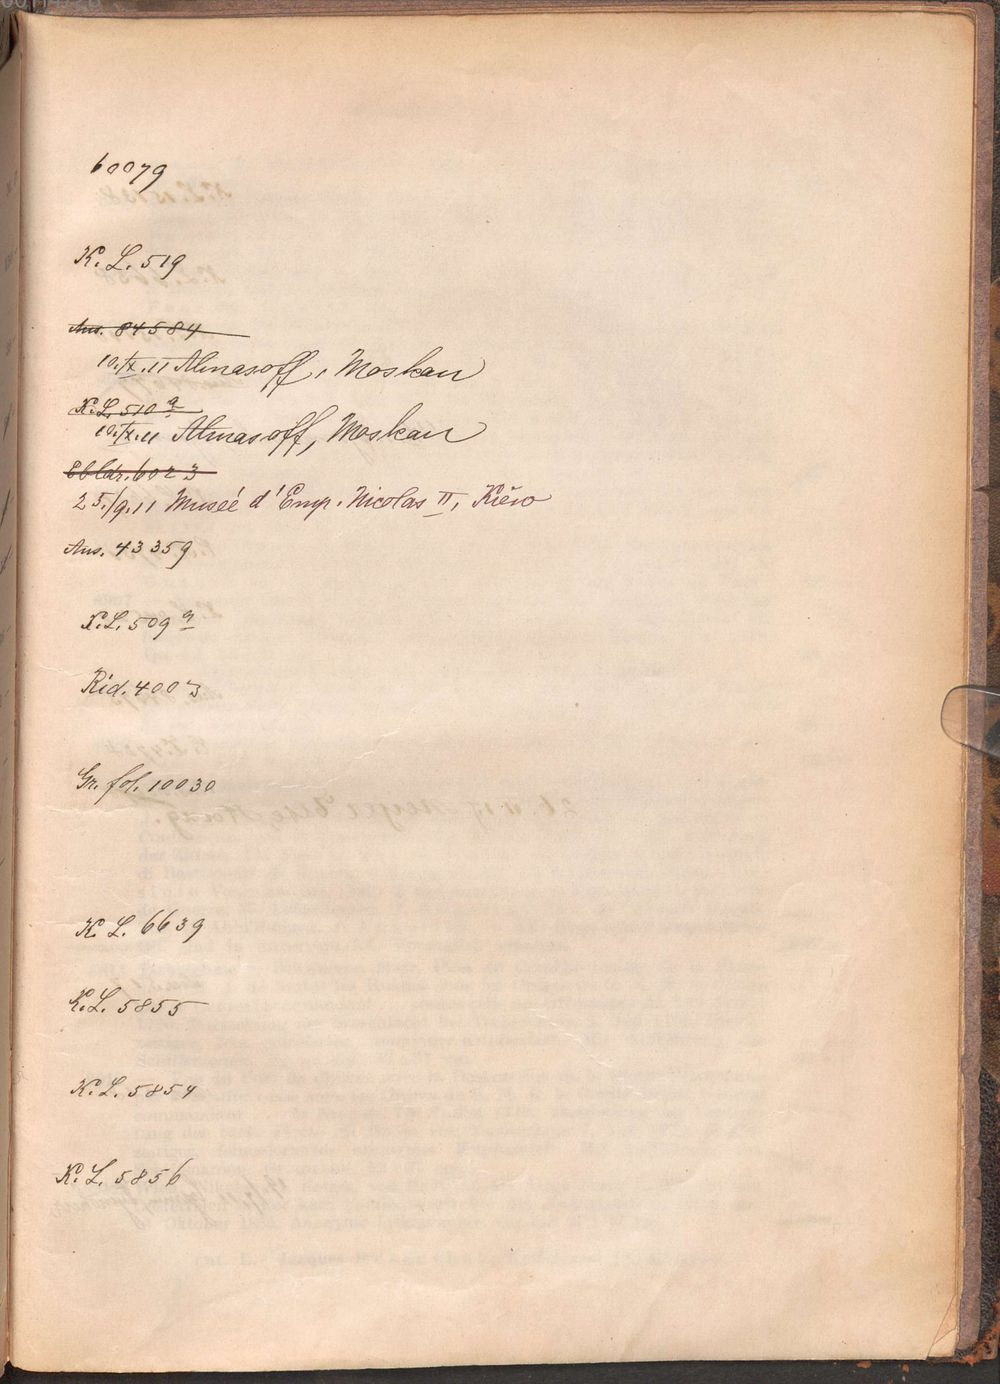 60079
K. L. 519
Ans. 84584
10./X.11 Almasoff, Moskau
K. L. 510 a
10./X.11 Almasoff, Moskau
Ebldr. 6023
25./9.11 Museé d'Emp. Nicolas II, Kiëw
Ans. 43359
K. L. 509 a
Rid. 4003
Gr. fol. 10030
K. L. 6639
K. L. 5855
K. L. 5854
K. L. 5856